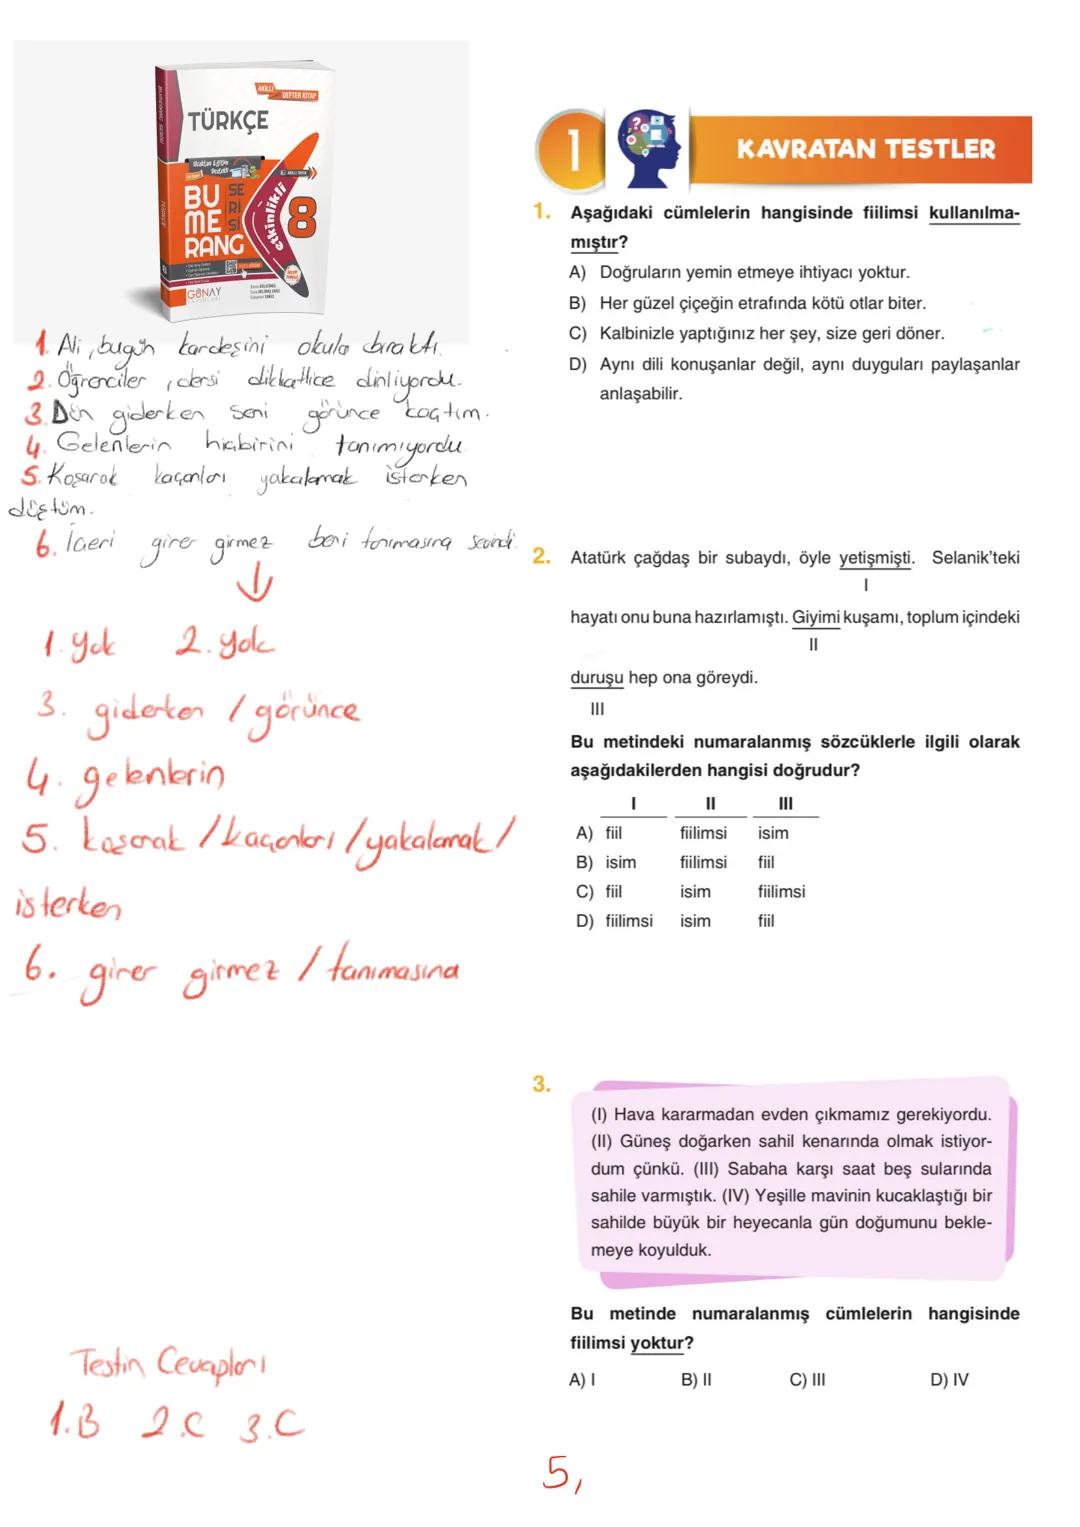 AKILLI
DEFTER KİTAP
TÜRKÇE
Uzaktan Eğitim
BU SE
ME Rİ
RANG Sİ
etkinlikli
8
GÜNAY
YAYINLARI
1. Ali, bugün kardeşini okula bıraktı.
2. Öğrenciler, dersi dikkatlice dinliyordu.
3. Dün giderken seni görünce kaçtım.
4. Gelenlerin hiçbirini tanımıyordu.
5. Koşarak kaçanları yakalamak isterken
düştüm.
6. İçeri girer girmez beni tanımasına sevindi.
1. yok 2. yok
3. giderken / görünce
4. gelenlerin
5. koşarak / kaçanları / yakalamak /
isterken
6. girer girmez / tanımasına
Testin Cevapları
1.B 2.C 3.C
1 KAVRATAN TESTLER
1. Aşağıdaki cümlelerin hangisinde fiilimsi kullanılma-
mıştır?
A) Doğruların yemin etmeye ihtiyacı yoktur.
B) Her güzel çiçeğin etrafında kötü otlar biter.
C) Kalbinizle yaptığınız her şey, size geri döner.
D) Aynı dili konuşanlar değil, aynı duyguları paylaşanlar
anlaşabilir.
2. Atatürk çağdaş bir subaydı, öyle yetişmişti. Selanik'teki
I
hayatı onu buna hazırlamıştı. Giyimi kuşamı, toplum içindeki
II
duruşu hep ona göreydi.
III
Bu metindeki numaralanmış sözcüklerle ilgili olarak
aşağıdakilerden hangisi doğrudur?
I II III
A) fiil fiilimsi isim
B) isim fiilimsi fiil
C) fiil isim fiilimsi
D) fiilimsi isim fiil
3.
(I) Hava kararmadan evden çıkmamız gerekiyordu.
(II) Güneş doğarken sahil kenarında olmak istiyor-
dum çünkü. (III) Sabaha karşı saat beş sularında
sahile varmıştık. (IV) Yeşille mavinin kucaklaştığı bir
sahilde büyük bir heyecanla gün doğumunu bekle-
meye koyulduk.
Bu metinde numaralanmış cümlelerin hangisinde
fiilimsi yoktur?
A) I B) II C) III D) IV
5,